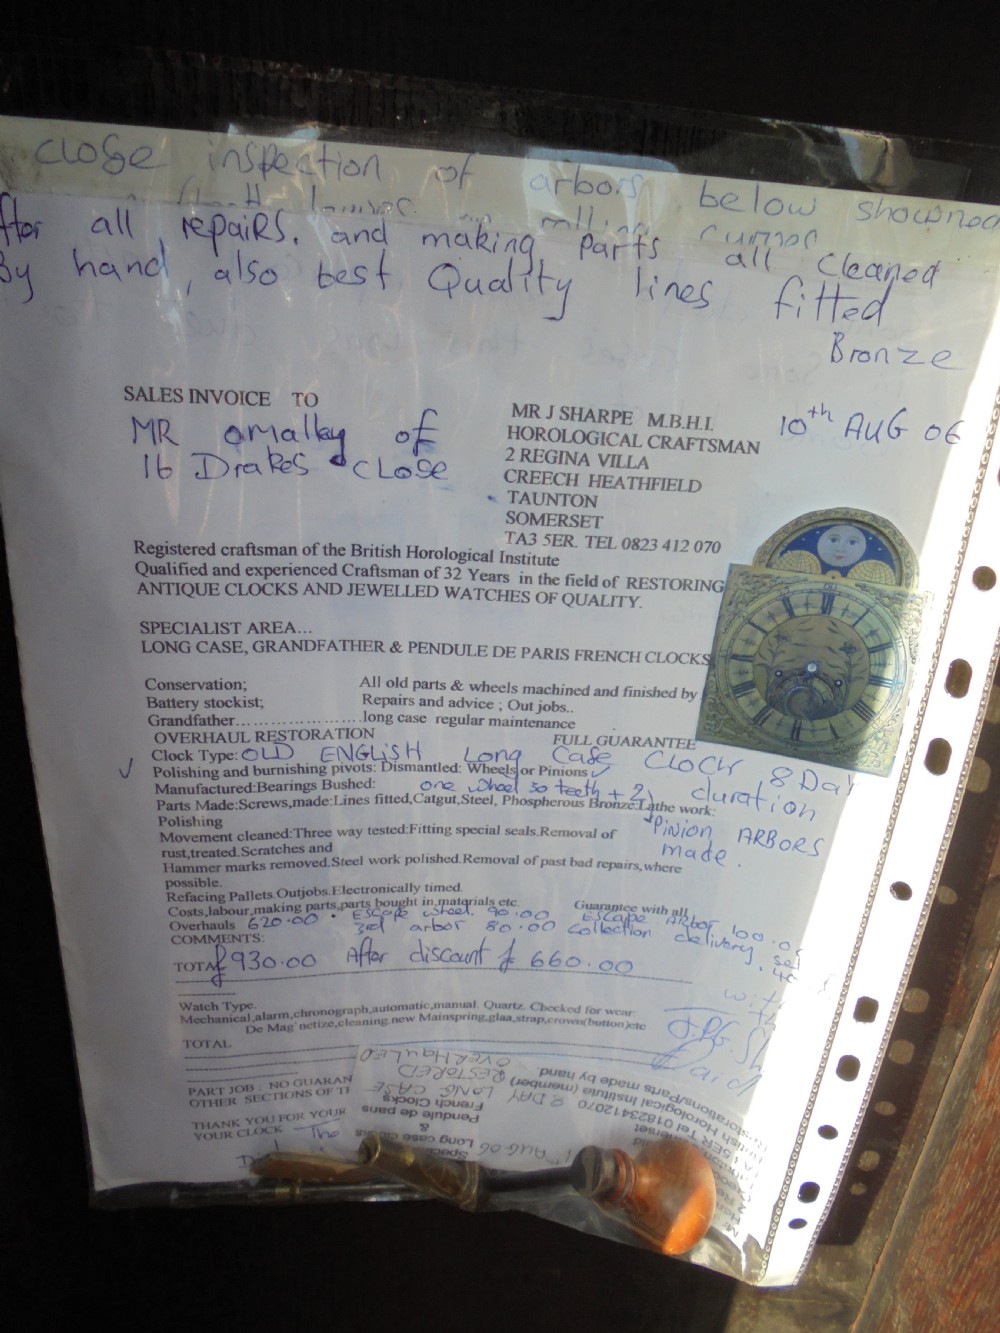 close inspection of arbors below showned
after all repairs. and making parts all cleaned
By hand, also best Quality lines fitted
Bronze
SALES INVOICE TO
MR omalley of
16 Drakes close
MR J SHARPE M.B.H.I.
HOROLOGICAL CRAFTSMAN
2 REGINA VILLA
CREECH HEATHFIELD
TAUNTON
SOMERSET
TA3 5ER. TEL 0823 412 070
10th AUG 06
Registered craftsman of the British Horological Institute
Qualified and experienced Craftsman of 32 Years in the field of RESTORING
ANTIQUE CLOCKS AND JEWELLED WATCHES OF QUALITY.
SPECIALIST AREA...
LONG CASE, GRANDFATHER & PENDULE DE PARIS FRENCH CLOCKS
Conservation; All old parts & wheels machined and finished by
Battery stockist; Repairs and advice ; Out jobs..
Grandfather......................long case regular maintenance
OVERHAUL RESTORATION FULL GUARANTEE
Clock Type: OLD ENGLISH Long Case Clock 8 Day
duration
Polishing and burnishing pivots: Dismantled: Wheels or Pinions
Manufactured:Bearings Bushed: one wheel 50 teeth + 2
Parts Made:Screws,made:Lines fitted,Catgut,Steel, Phospherous Bronze:Lathe work:
Polishing
Pinion ARBORS
made.
Movement cleaned:Three way tested:Fitting special seals.Removal of
rust,treated.Scratches and
Hammer marks removed.Steel work polished.Removal of past bad repairs,where
possible.
Refacing Pallets.Outjobs.Electronically timed.
Costs,labour,making parts,parts bought in,materials etc. Guarantee with all
Overhauls 620.00 . Escape wheel. 90.00 Escape Arbor 100.0
3rd arbor 80.00 collection delivery, se
COMMENTS:
TOTAL £930.00 After discount £ 660.00
Watch Type.
Mechanical,alarm,chronograph,automatic,manual. Quartz. Checked for wear:
De Mag'netize,cleaning.new Mainspring,glaa,strap,crown(button)etc
TOTAL
Paid
PART JOB : NO GUARAN
OTHER SECTIONS OF TI
THANK YOU FOR YOUR
YOUR CLOCK The
OVERHAULED
RESTORED
LONG CASE
8 DAY
AUG 06
Long case clocks
&
Pendule de paris
French Clocks
Restorations/Parts made by hand.
British Horological Institute (member)
TA3 5ER Tel 01823412070